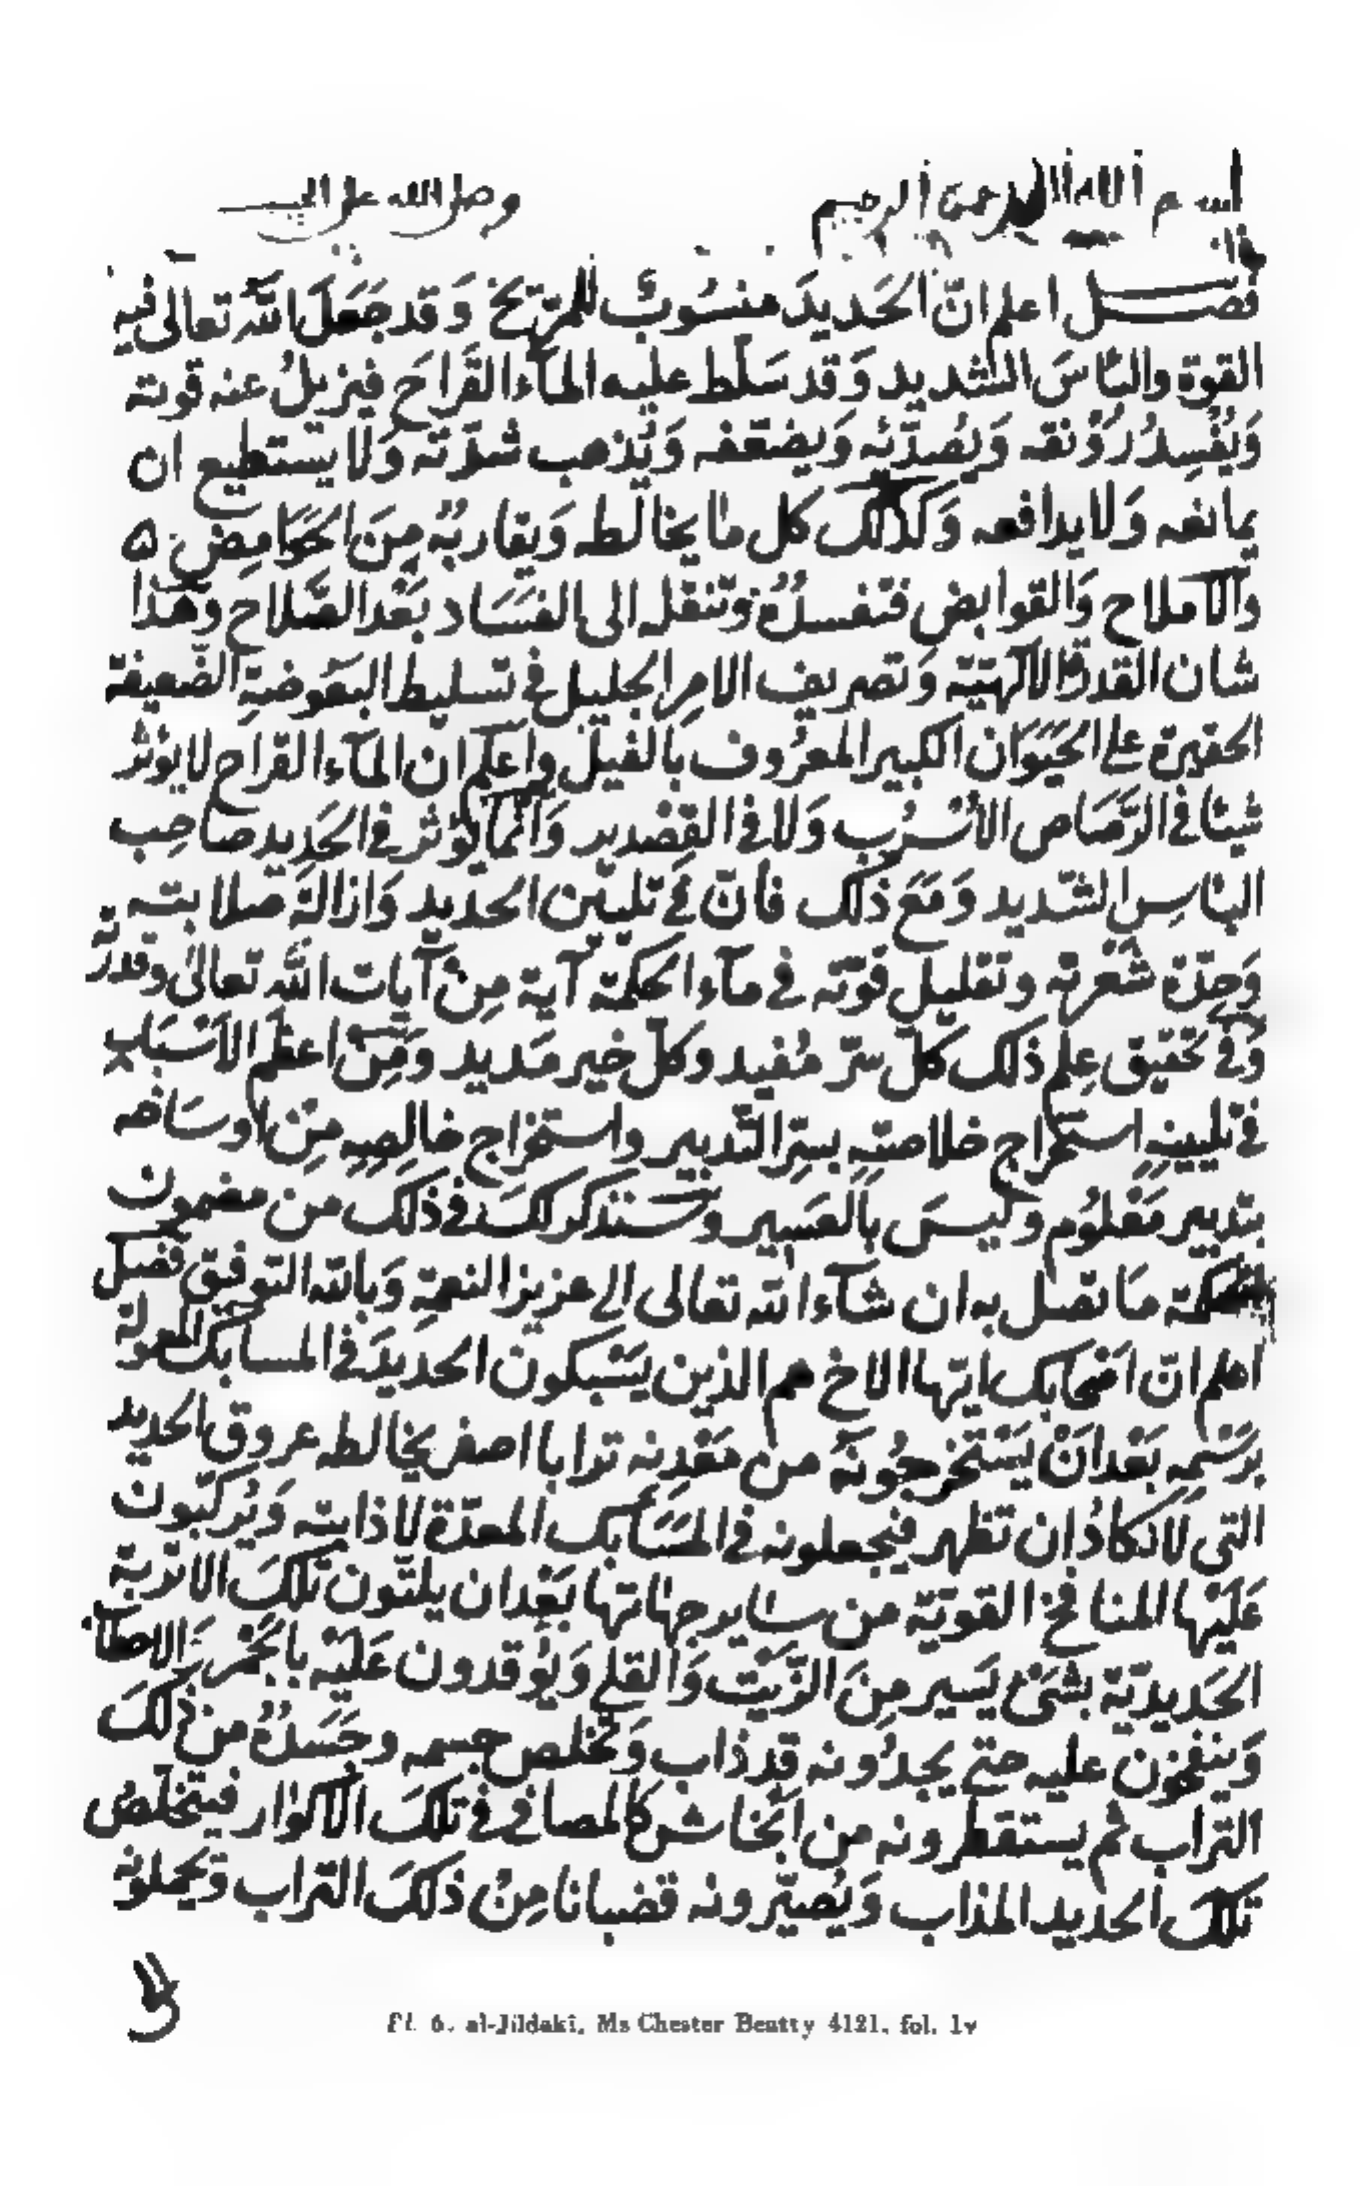 بسم الله الرحمن الرحيم وصلى الله على
فصل اعلم انّ الحَديدَ منسُوبٌ للمرّيخ وَقد جَعَلَ اللهُ تعالى فيه
القوة والبَاسَ الشديد وَقد سَلّط عليه المآء القَراحَ فيزيلُ عنه قوته
وَيُفْسِدُ رُوْنقه وَيُصدّئه وَيضعّفه وَيُذهب شدّته وَلا يستطيع ان
يمانعه وَلا يدافعه وَكذلك كل ما يخالطه وَيقاربُهُ مِنَ الحَوَامِض
والاملاح وَالقوابض فتفسدُهُ وتنقله الى الفسَاد بَعْد الصّلاح وهذا
شان القدرة الالَهيّة وَتصريف الامرِ الجليل في تسليط البَعوضةِ الضّعيفة
الحقيرة على الحَيَوَان الكبير المعرُوف بالفيل واعلم ان المآء القراح لا يؤثر
شيئا في الرّصَاص الأسْرُب وَلا في القِصْدير وَانّما يؤثر في الحَديد صاحِب
البَاسِ الشّديد وَمَعَ ذلك فانّ في تليين الحَديد وَازالة صلابته
وَحِدّة شَعْرته وتقليل قوّته في مآء الحكمة آية مِنْ آيات اللّه تعالى وقدرته
وَفي تحقيق عِلم ذلك كلّ سّر مُفيد وكلّ خير مَديد وَمِنْ اعظم الاسْبَاب
في تليينهِ استخراج خلاصتِهِ بسِرّ التّدبير واستخراج خالِصِهِ مِنْ اوسَاخه
بتدبير مَعْلُوم وليسَ بالعَسِير وَسَنذكر لكَ في ذلك من مضمون
الحكمة مَا تصل به ان شآء الله تعالى الى عزيز النعمةِ وَبالله التوفيق فصل
اعلم انّ اصْحابك ايّها الاخ هم الذين يَسْبكون الحَديدَ في المسابك المعمولة
برَسْمِهِ بَعْد اَنْ يَسْتخرجُونَهُ من مَعْدِنه ترابا اصفر يخالطه عروق الحديد
التي لا تكادُ ان تظهر فيجعلونه في المسَابك المعدّة لاذابته وَيُركّبُون
عَلَيْها المنافخ القويّة من ساير جهاتها بَعْد ان يلتّون تلكَ الاتربة
الحَديديّة بشئ يَسير مِنَ الزّيْت وَالقلى وَيُوقدون عَلَيْه بالجَمْر
وَينفخون عليه حتى يجدُونه قد ذاب وَتخلص جسمه وجَسَدُهُ من ذلكَ
التراب ثم يستقطرونه من اَنْخاش كالمصافي في تلكَ الاكوار فيتخلّصُ
تلكَ الحديد المذاب وَيُصيّرونه قضبانا مِنْ ذلكَ التراب وَيحملونه
Pl. 6. al-Jildakî, Ms Chester Beatty 4121, fol. 1v